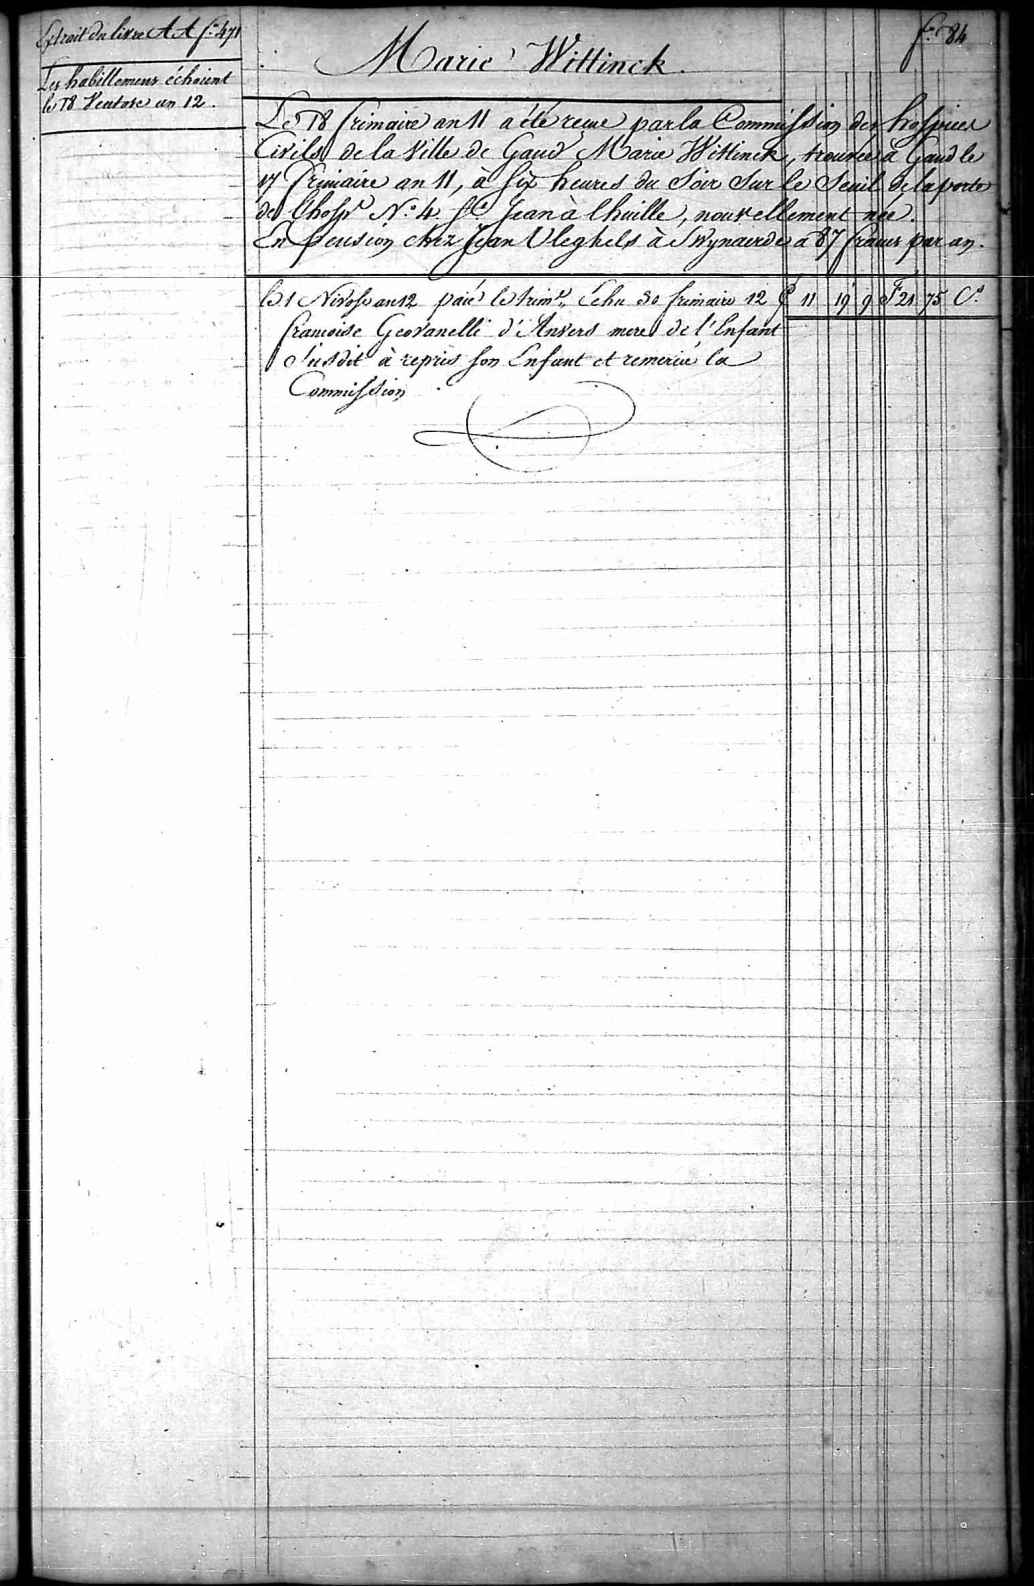 Extrait du livre AA f.º 471
f.º 84
Marie Wittinck.
Les habillemens échoient
le 18 Ventose an 12.
Le 18 frimaire an 11 a été reçue par la Commission des hospices
Civils de la Ville de Gand Marie Wittinck, trouvée à Gand le
17 frimaire an 11, à six heures du Soir Sur le Seuil de la porte
de l'hospce Nº 4 St Jean à l'huille, nouvellement née.
En pension chez Jean Vleghels à Swynaerde à 87 francs par an.
le 1 Nivose an 12 paié le trimre échu 30 frimaire 12 £ 11 19 9 F 21 75 Cs
francoise Geovanelli d'Anvers mere de l'Enfant
Susdit à repris son Enfant et remercié la
Commission